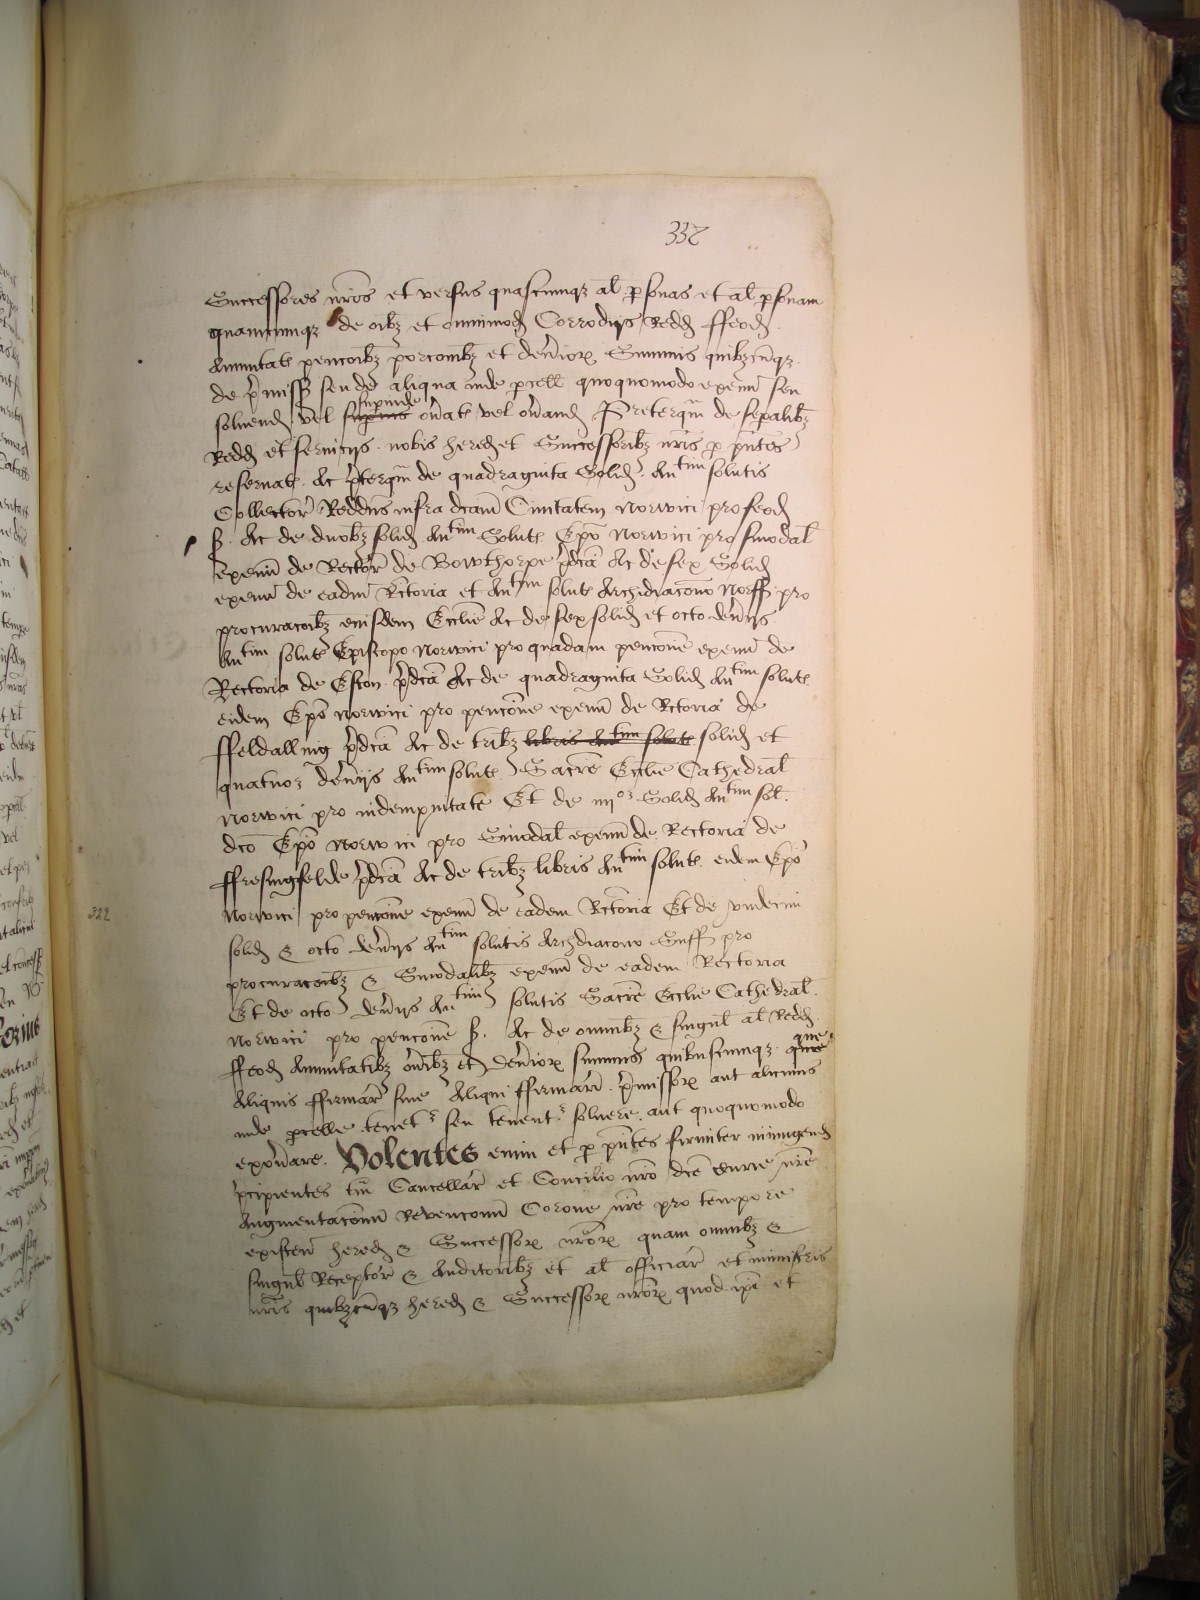 332
Successores nr̄os et versus quascumqꝫ al̄ ꝑsonas et al̄ ꝑsonam
quamcumqꝫ de oībꝫ et omnimod Corrodijs Redd ffeod
Annuitat pencōibꝫ porcōnibꝫ et denarioꝝ Summis quibꝫcūqꝫ
de p̄miss seu de aliqua inde ꝑcell quoquomodo exeun̄ seu
soluend vel supinde on̄at vel on̄and Preterqm̄ de sepalibꝫ
Redd et seruicijs nobis hered et Successoribꝫ nr̄is ꝑ p̄ntes
reseruat Ac p̄terqm̄ de quadraginta Solid Antim solutis
Collector Reddus infra dcām Ciuitatem Norwici pro feod
ff. Ac de duobꝫ solid Antim Solut Ep̄o Norwici pro sinodal̄
exeun̄ de Rector de Bowthorpe p̄dcā Ac de sex Solid
exeun̄ de eadm̄ Rc̄toria et Antim solut Archidiacono Norff pro
procuracōibꝫ eiusdem Eccl̄ie Ac de sex solid et octo den̄ijs
Antim solut Episcopo Norwici pro quadam pencōne exeun̄ de
Rectoria de Eston p̄dcā Ac de quadraginta Solid Antim solut
eidem Ep̄o Norwici pro pencōne exeun̄ de Rc̄toria de
ffeldalling p̄dcā Ac de tribꝫ libris Antim solut solid et
quatuor den̄ijs Antim solut Sacre Eccl̄ie Cathedral̄
Norwici pro indempnitate Et de iiijor Solid Antim sol.
dc̄o Ep̄o Norwici pro Sinodal exeun̄ de Rectoria de
ffresingfelde p̄dcā Ac de tribꝫ libris Antim solut eidem Ep̄o
Norwici pro pencōne exeun̄ de eadem Rc̄toria Et de vndecim
322
solid & octo den̄ijs Antim solutis Archdiacono Suff pro
procuracōibꝫ & Sinodalibꝫ exeun̄ de eadem Rectoria
Et de octo den̄ijs Antim solutis Sacre Eccl̄ie Cathedral̄
Norwici pro pencōne ff. Ac de omnibꝫ & singul̄ al̄ Redd
ffeod Annuitatibꝫ on̄ibꝫ et den̄ioꝝ summis quibuscumqꝫ que que
Aliquis ffirmar siue Aliqui ffirmarii p̄missoꝝ aut alicuius
inde ꝑcelle tenetr seu tenentr soluere aut quoquomodo
exon̄are. Volentes enim et ꝑ p̄ntes firmiter iniungend
p̄cipientes tm̄ Cancellar et Concilio nr̄o dc̄e Curie nr̄e
Augmentacōnū Reuencōnū Corone nr̄e pro tempore
existen̄ hered & Successoꝝ nr̄oꝝ quam omnibꝫ &
singul̄ Receptor & Auditoribꝫ et al̄ officiar et ministris
nr̄is quibꝫcūqꝫ hered & Successoꝝ nr̄oꝝ quod ip̄i et